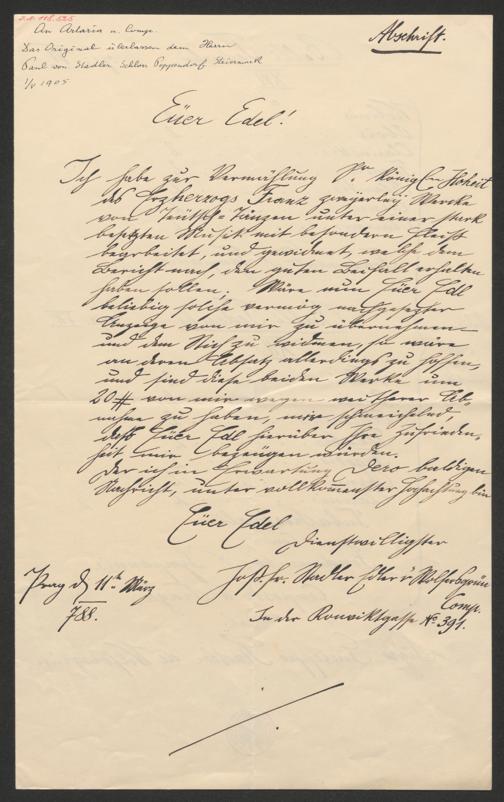 An Artaria u. Comp.
Das Original überlassen dem Herrn
Paul von Stadler Schloss Poppendorf, Steiermark
1/V 1905
Abschrift.
Euer Edel!
Ich habe zur Vermählung Sr. königlen Hoheit
des Erzherzogs Franz zweyerley Werke
von teütsche Tänzen unter einer stark
besetzten Musik mit besondern Fleiß
bearbeitet, und gewidmet, welche dem
Bericht nach, den guten Beifall erhalten
haben sollen. Wäre nun Euer Edl
beliebig solche vermög nachgesezter
Anzeige von mir zu übernehmen
und dem Stich zu widmen, so wäre
an deren Absatz allerdings zu hoffen,
und sind diese beiden Werke um
20 # von mir wegen weitherer Ab-
nahme zu haben, mir schmeichelnd,
daß Euer Edl hierüber Ihre Zufrieden-
heit mir bezeugen würden.
Der ich in Erwartung Dero baldigen
Nachricht, unter vollkommenster Hochachtung bin
Euer Edel
Dienstwilligster
Prag d. 11ten März
788.
Jos. fr. Stadler Edler v Wolfersgrün
Comp.
In der Konviktgasse No 391.